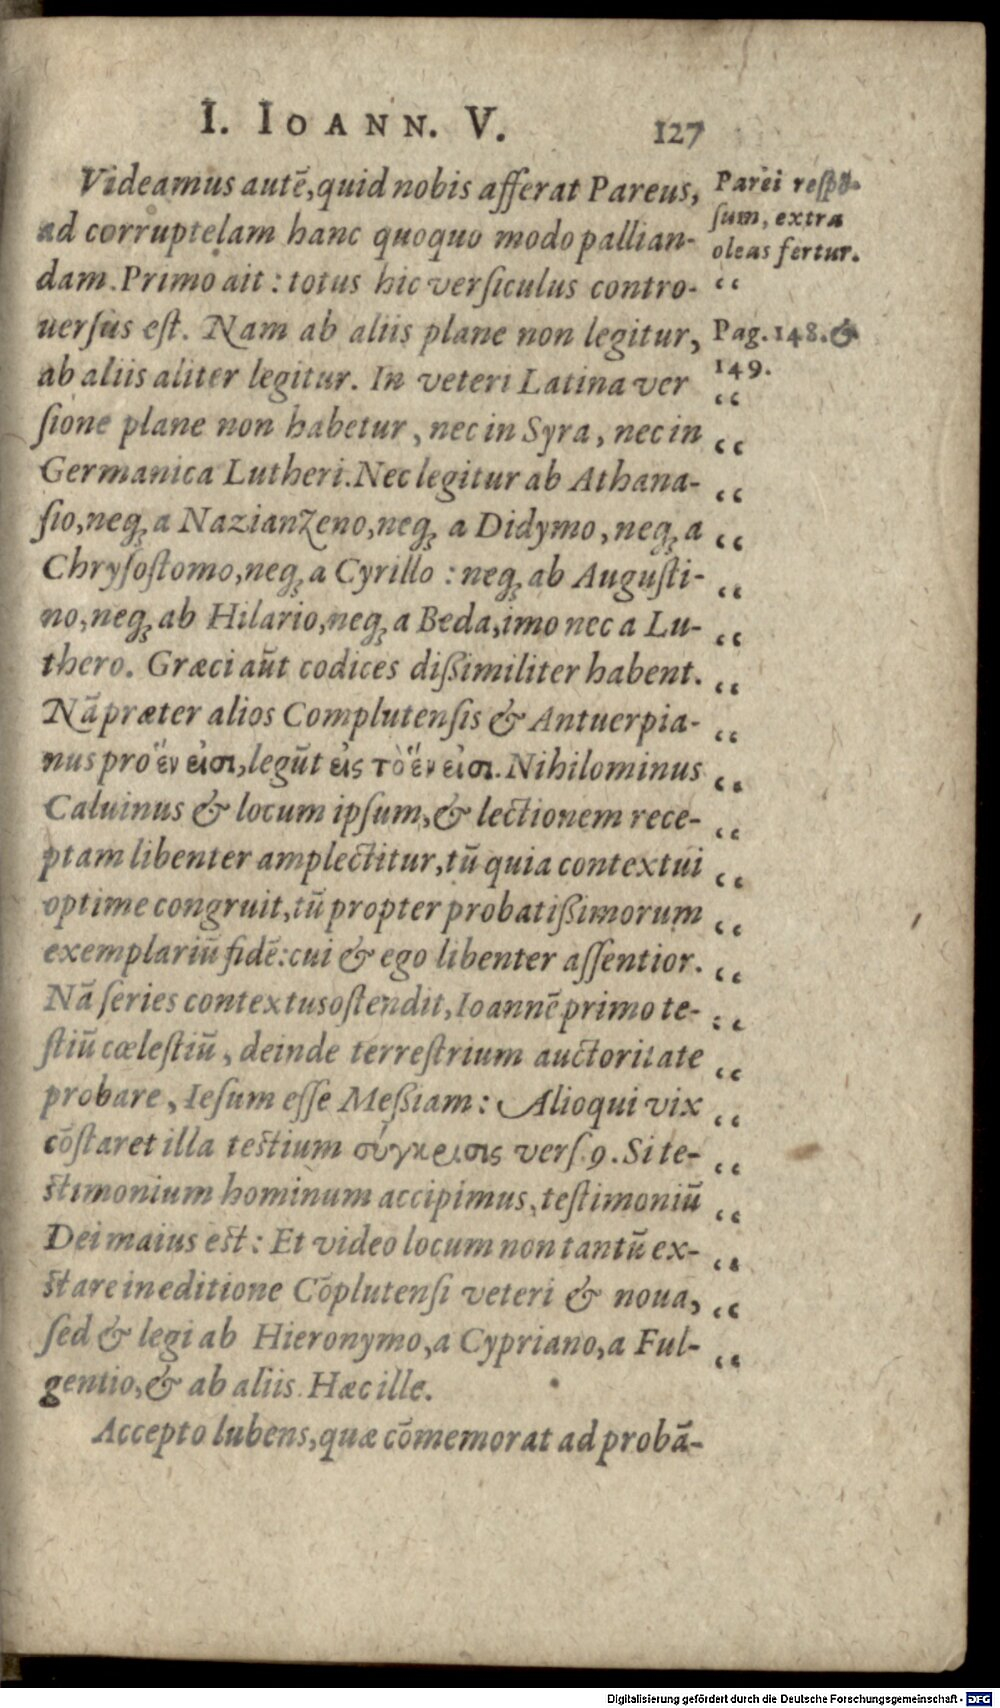 I. IOANN. V. 127
Videamus autē, quid nobis afferat Pareus,
ad corruptelam hanc quoquo modo pallian-
dam. Primo ait : totus hic verſiculus contro-
uerſus eſt. Nam ab aliis plane non legitur,
ab aliis aliter legitur. In veteri Latina ver
ſione plane non habetur, nec in Syra, nec in
Germanica Lutheri. Nec legitur ab Athana-
ſio, neq; a Nazianzeno, neq; a Didymo, neq; a
Chryſoſtomo, neq; a Cyrillo : neq; ab Auguſti-
no, neq; ab Hilario, neq; a Beda, imo nec a Lu-
thero. Græci aūt codices dißimiliter habent.
Nā præter alios Complutenſis & Antuerpia-
nus pro ἕν εἰσι, legūt εἰς τὸ ἕν εἰσι. Nihilominus
Caluinus & locum ipſum, & lectionem rece-
ptam libenter amplectitur, tū quia contextui
optime congruit, tū propter probatißimorum
exemplariū fidē: cui & ego libenter aſſentior.
Nā ſeries contextus oſtendit, Ioannē primo te-
ſtiū cœleſtiū, deinde terreſtrium auctoritate
probare, Ieſum eſſe Meßiam : Alioqui vix
cōſtaret illa teſtium σύγκρισις verſ. 9. Si te-
ſtimonium hominum accipimus, teſtimoniū
Dei maius eſt : Et video locum non tantū ex-
ſtare in editione Cōplutenſi veteri & noua,
ſed & legi ab Hieronymo, a Cypriano, a Ful-
gentio, & ab aliis. Hæc ille.
Accepto lubens, quæ cōmemorat ad probā-
Parei reſpō-
ſum, extra
oleas fertur.
Pag. 148. &
149.
Digitalisierung gefördert durch die Deutsche Forschungsgemeinschaft - DFG